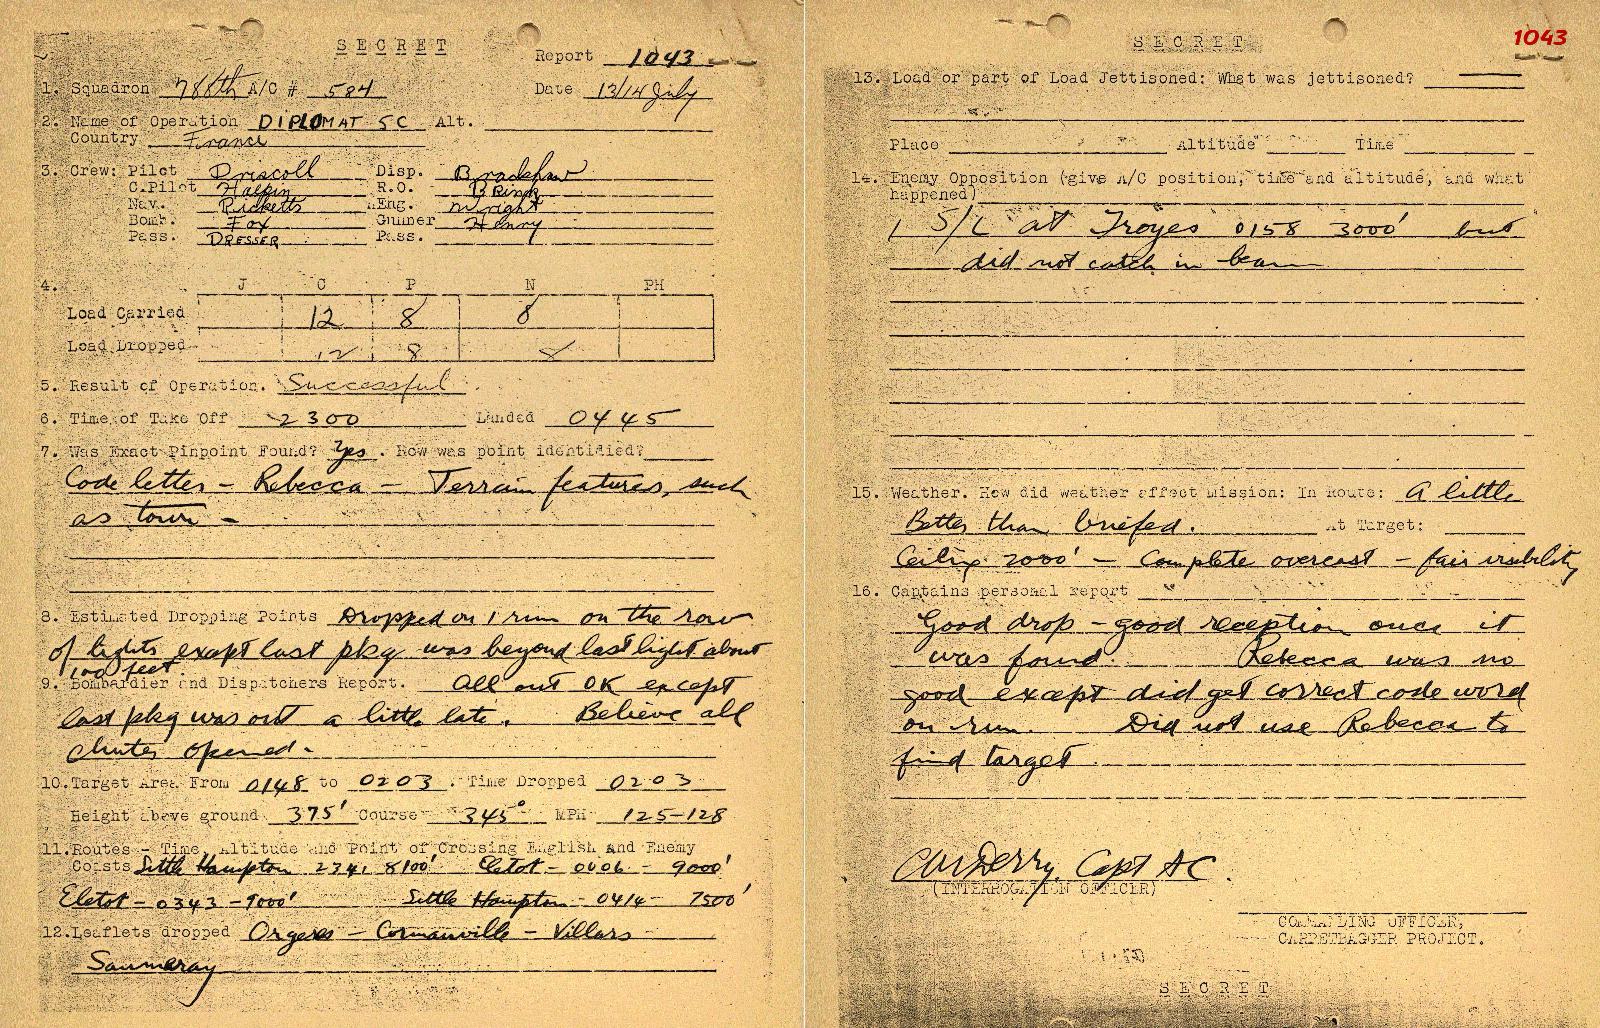 SECRET
Report 1043
1. Squadron 788th A/C # 584 Date 13/14 July
2. Name of Operation DIPLOMAT 5C Alt.
Country France
3. Crew: Pilot Driscoll Disp. Bradshaw
C.Pilot Halpin R.O. Brink
Nav. Ricketts Eng. Wright
Bomb. Fox Gunner Henry
Pass. DRESSER Pass.
4. J C P N PH
Load Carried 12 8 8
Load Dropped 12 8 8
5. Result of Operation. Successful
6. Time of Take Off 2300 Landed 0445
7. Was Exact Pinpoint Found? Yes. How was point identidied?
Code letter - Rebecca - Terrain features, such
as town -
8. Estimated Dropping Points Dropped on 1 run on the row
of lights exapt last pkg was beyond last light about
100 feet.
9. Bombardier and Dispatchers Report. All out OK except
last pkg was out a little late. Believe all
chutes opened.
10. Target Area From 0148 to 0203. Time Dropped 0203
Height above ground 375' Course 345° MPH 125-128
11. Routes - Time, Altitude and Point of Crossing English and Enemy
Coasts Little Hampton 2341 8100' Eletot - 0006 - 9000'
Eletot - 0343 - 9000' Little Hampton - 0414 - 7500'
12. Leaflets dropped Orgeres - Cormanville - Villars
Saumeray
1043
SECRET
13. Load or part of Load Jettisoned: What was jettisoned?
Place Altitude Time
14. Enemy Opposition (give A/C position, time and altitude, and what
happened)
1 S/L at Troyes 0158 3000' but
did not catch in beam
15. Weather. How did weather effect Mission: In Route: A little
Better than briefed. At Target:
Ceiling 2000' - Complete overcast - fair visibility
16. Captains personal report
Good drop - good reception once it
was found. Rebecca was no
good except did get correct code word
on run. Did not use Rebecca to
find target
Capt AC.
(INTERROGATION OFFICER)
COMMANDING OFFICER,
CARPETBAGGER PROJECT.
SECRET